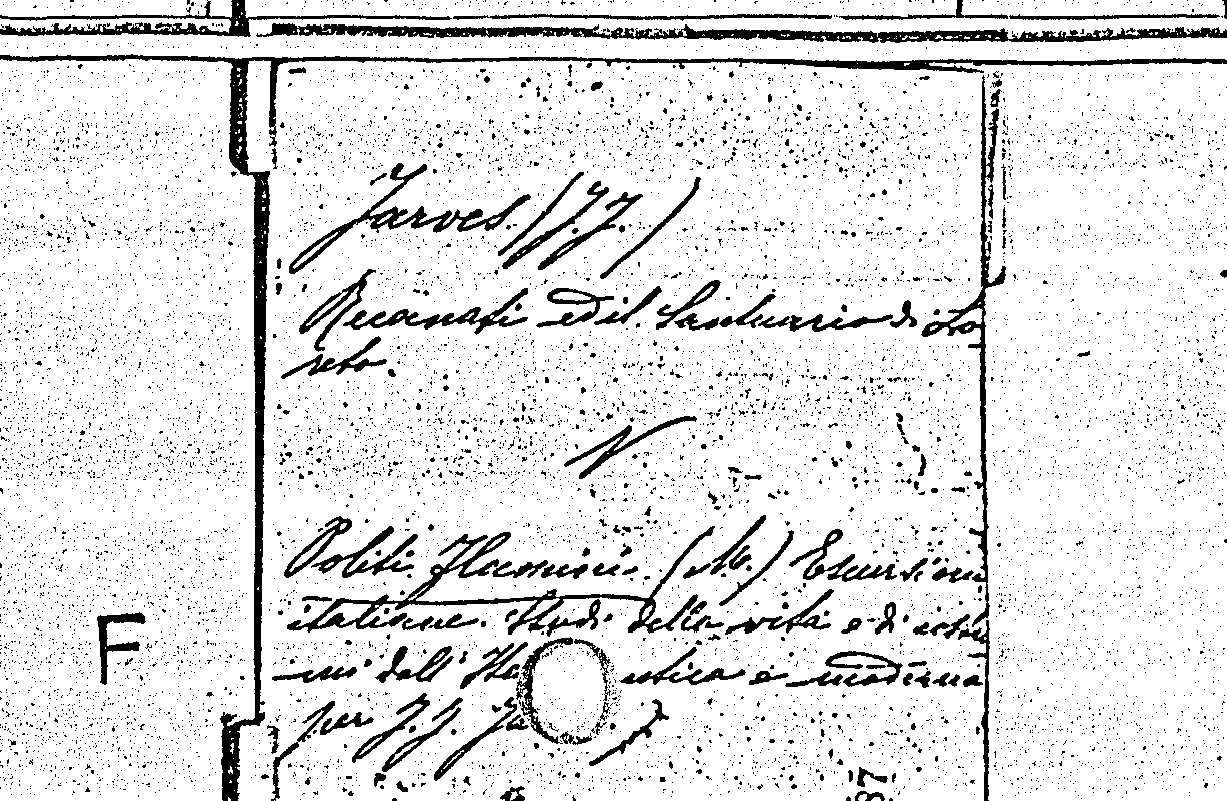 Jarves. (J. J.)
Recanati ed il Santuario di Lo
reto.
V
Politi Flamini. (M.) Escursioni
italiane. Studi della vita e di costu
F
mi dell' Ita antica e moderna
per J. J. Ja
87